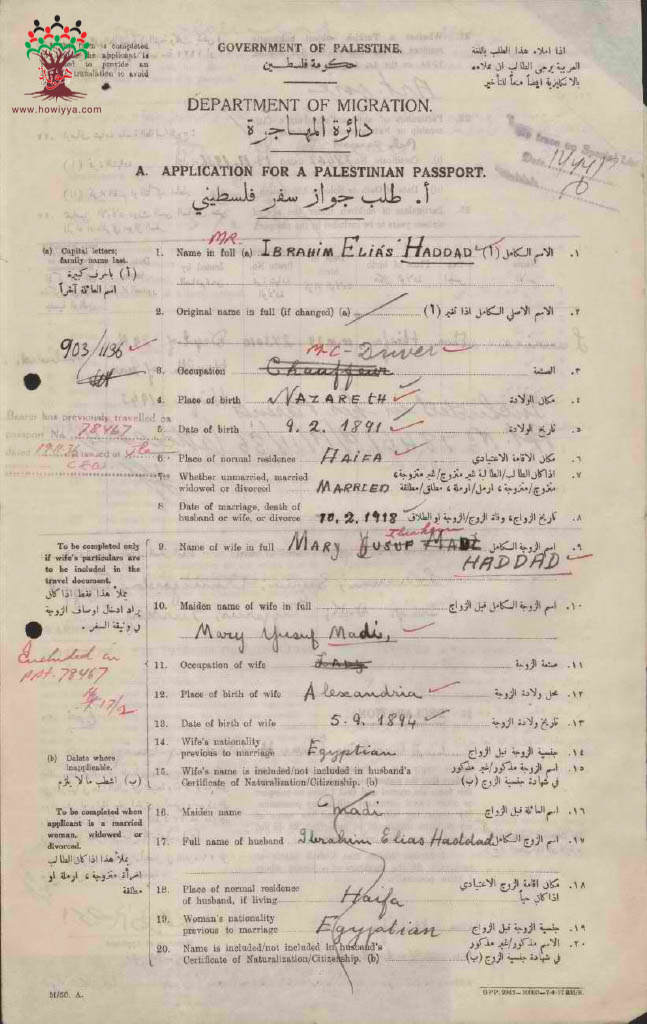 www.howiyya.com
GOVERNMENT OF PALESTINE.
حكومة فلسطين
اذا املاء هذا الطلب باللغة
العربية يرجى الطالب ان يملأه
بالانكليزية ايضاً منعاً للتأخير
DEPARTMENT OF MIGRATION.
دائرة المهاجرة
A. APPLICATION FOR A PALESTINIAN PASSPORT.
أ. طلب جواز سفر فلسطيني
(a) Capital letters; family name last.
(أ) باحرف كبيرة
اسم العائلة آخراً
MR.
1. Name in full (a) IBRAHIM ELIAS HADDAD الاسم الكامل (أ) ١.
2. Original name in full (if changed) (a) الاسم الاصلي الكامل اذا تغير (أ) ٢.
903/1136
M.C-Driver
3. Occupation Chauffeur الصنعة ٣.
4. Place of birth NAZARETH مكان الولادة ٤.
Bearer has previously travelled on
passport No. 78467
dated 19.11.36 issued at
5. Date of birth 9.2.1891 تاريخ الولادة ٥.
6. Place of normal residence HAIFA مكان الاقامة الاعتيادي ٦.
7. Whether unmarried, married widowed or divorced MARRIED اذا كان الطالب/الطالبة غير متزوج/غير متزوجة، متزوج/متزوجة، ارمل/ارملة، مطلق/مطلقة ٧.
8. Date of marriage, death of husband or wife, or divorce 10.2.1918 تاريخ الزواج، وفاة الزوج/الزوجة او الطلاق ٨.
To be completed only if wife's particulars are to be included in the travel document.
يملأ هذا فقط اذا كان
يراد ادخال اوصاف الزوجة
في وثيقة السفر.
Ibrahim
9. Name of wife in full MARY YUSUF MADI اسم الزوجة الكامل ٩.
HADDAD
10. Maiden name of wife in full اسم الزوجة الكامل قبل الزواج ١٠.
Mary Yusuf Madi,
Included in
ppt. 78467
17/2
11. Occupation of wife صنعة الزوجة ١١.
12. Place of birth of wife Alexandria محل ولادة الزوجة ١٢.
13. Date of birth of wife 5.9.1894 تاريخ ولادة الزوجة ١٣.
14. Wife's nationality previous to marriage Egyptian جنسية الزوجة قبل الزواج ١٤.
(b) Delete where inapplicable.
(ب) اشطب ما لا يلزم
15. Wife's name is included/not included in husband's Certificate of Naturalization/Citizenship. (b) اسم الزوجة مذكور/غير مذكور في شهادة جنسية الزوج (ب) ١٥.
To be completed when applicant is a married woman, widowed or divorced.
يملأ هذا اذا كان الطالب
امرأة متزوجة، ارملة او
مطلقة
16. Maiden name Madi اسم العائلة قبل الزواج ١٦.
17. Full name of husband Ibrahim Elias Haddad اسم الزوج الكامل ١٧.
18. Place of normal residence of husband, if living Haifa مكان اقامة الزوج الاعتيادي اذا كان حياً ١٨.
19. Woman's nationality previous to marriage Egyptian جنسية الزوجة قبل الزواج ١٩.
20. Name is included/not included in husband's Certificate of Naturalization/Citizenship. (b) الاسم مذكور/غير مذكور في شهادة جنسية الزوج (ب) ٢٠.
M/50. A.